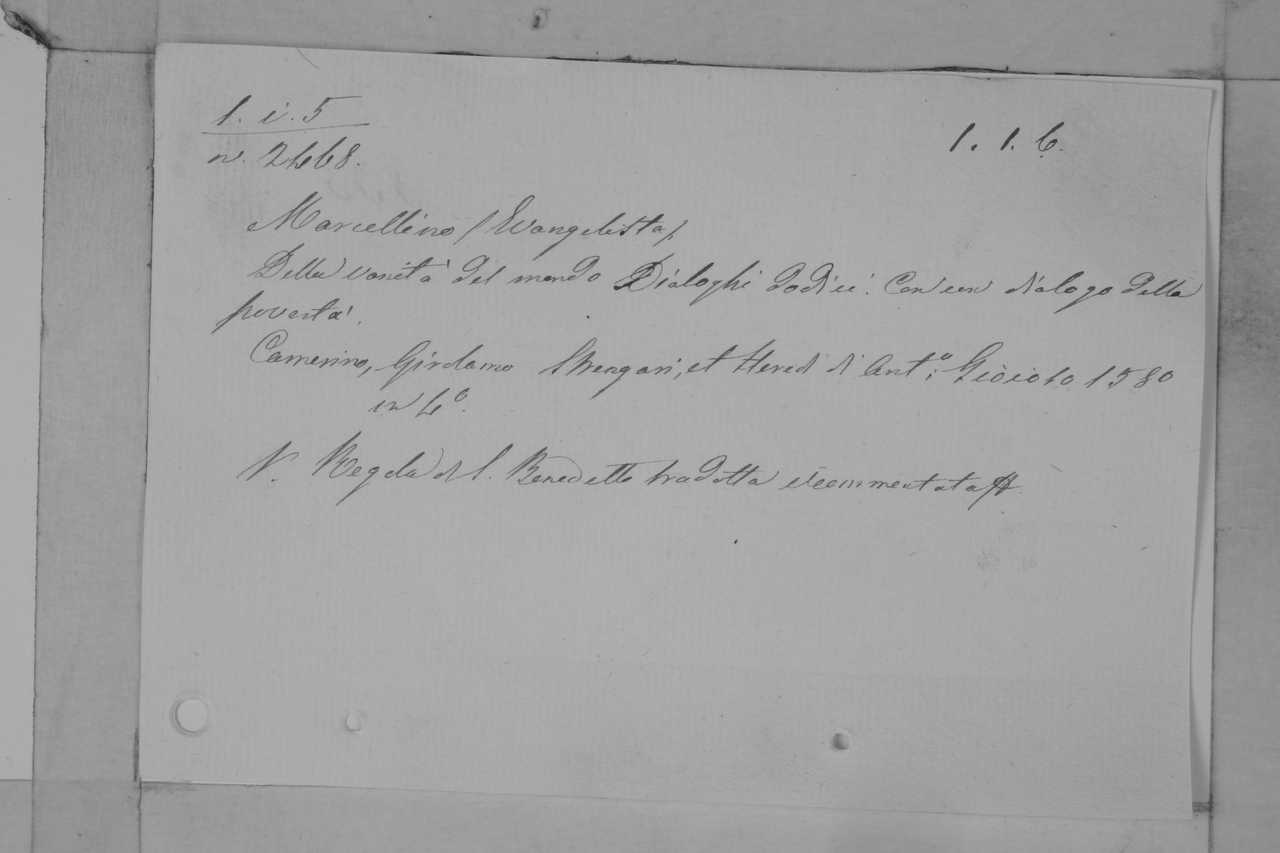 1. i. 5
1. 1. 6.
n. 2468.
Marcellino (Evangelista).
Della vanità del mondo Dialoghi dodici. Con un dialogo della
povertà.
Camerino, Girolamo Strengari, et Heredi di Ant.º Gioioso 1580
in 4º.
V. Regola di S. Benedetto tradotta e commentata